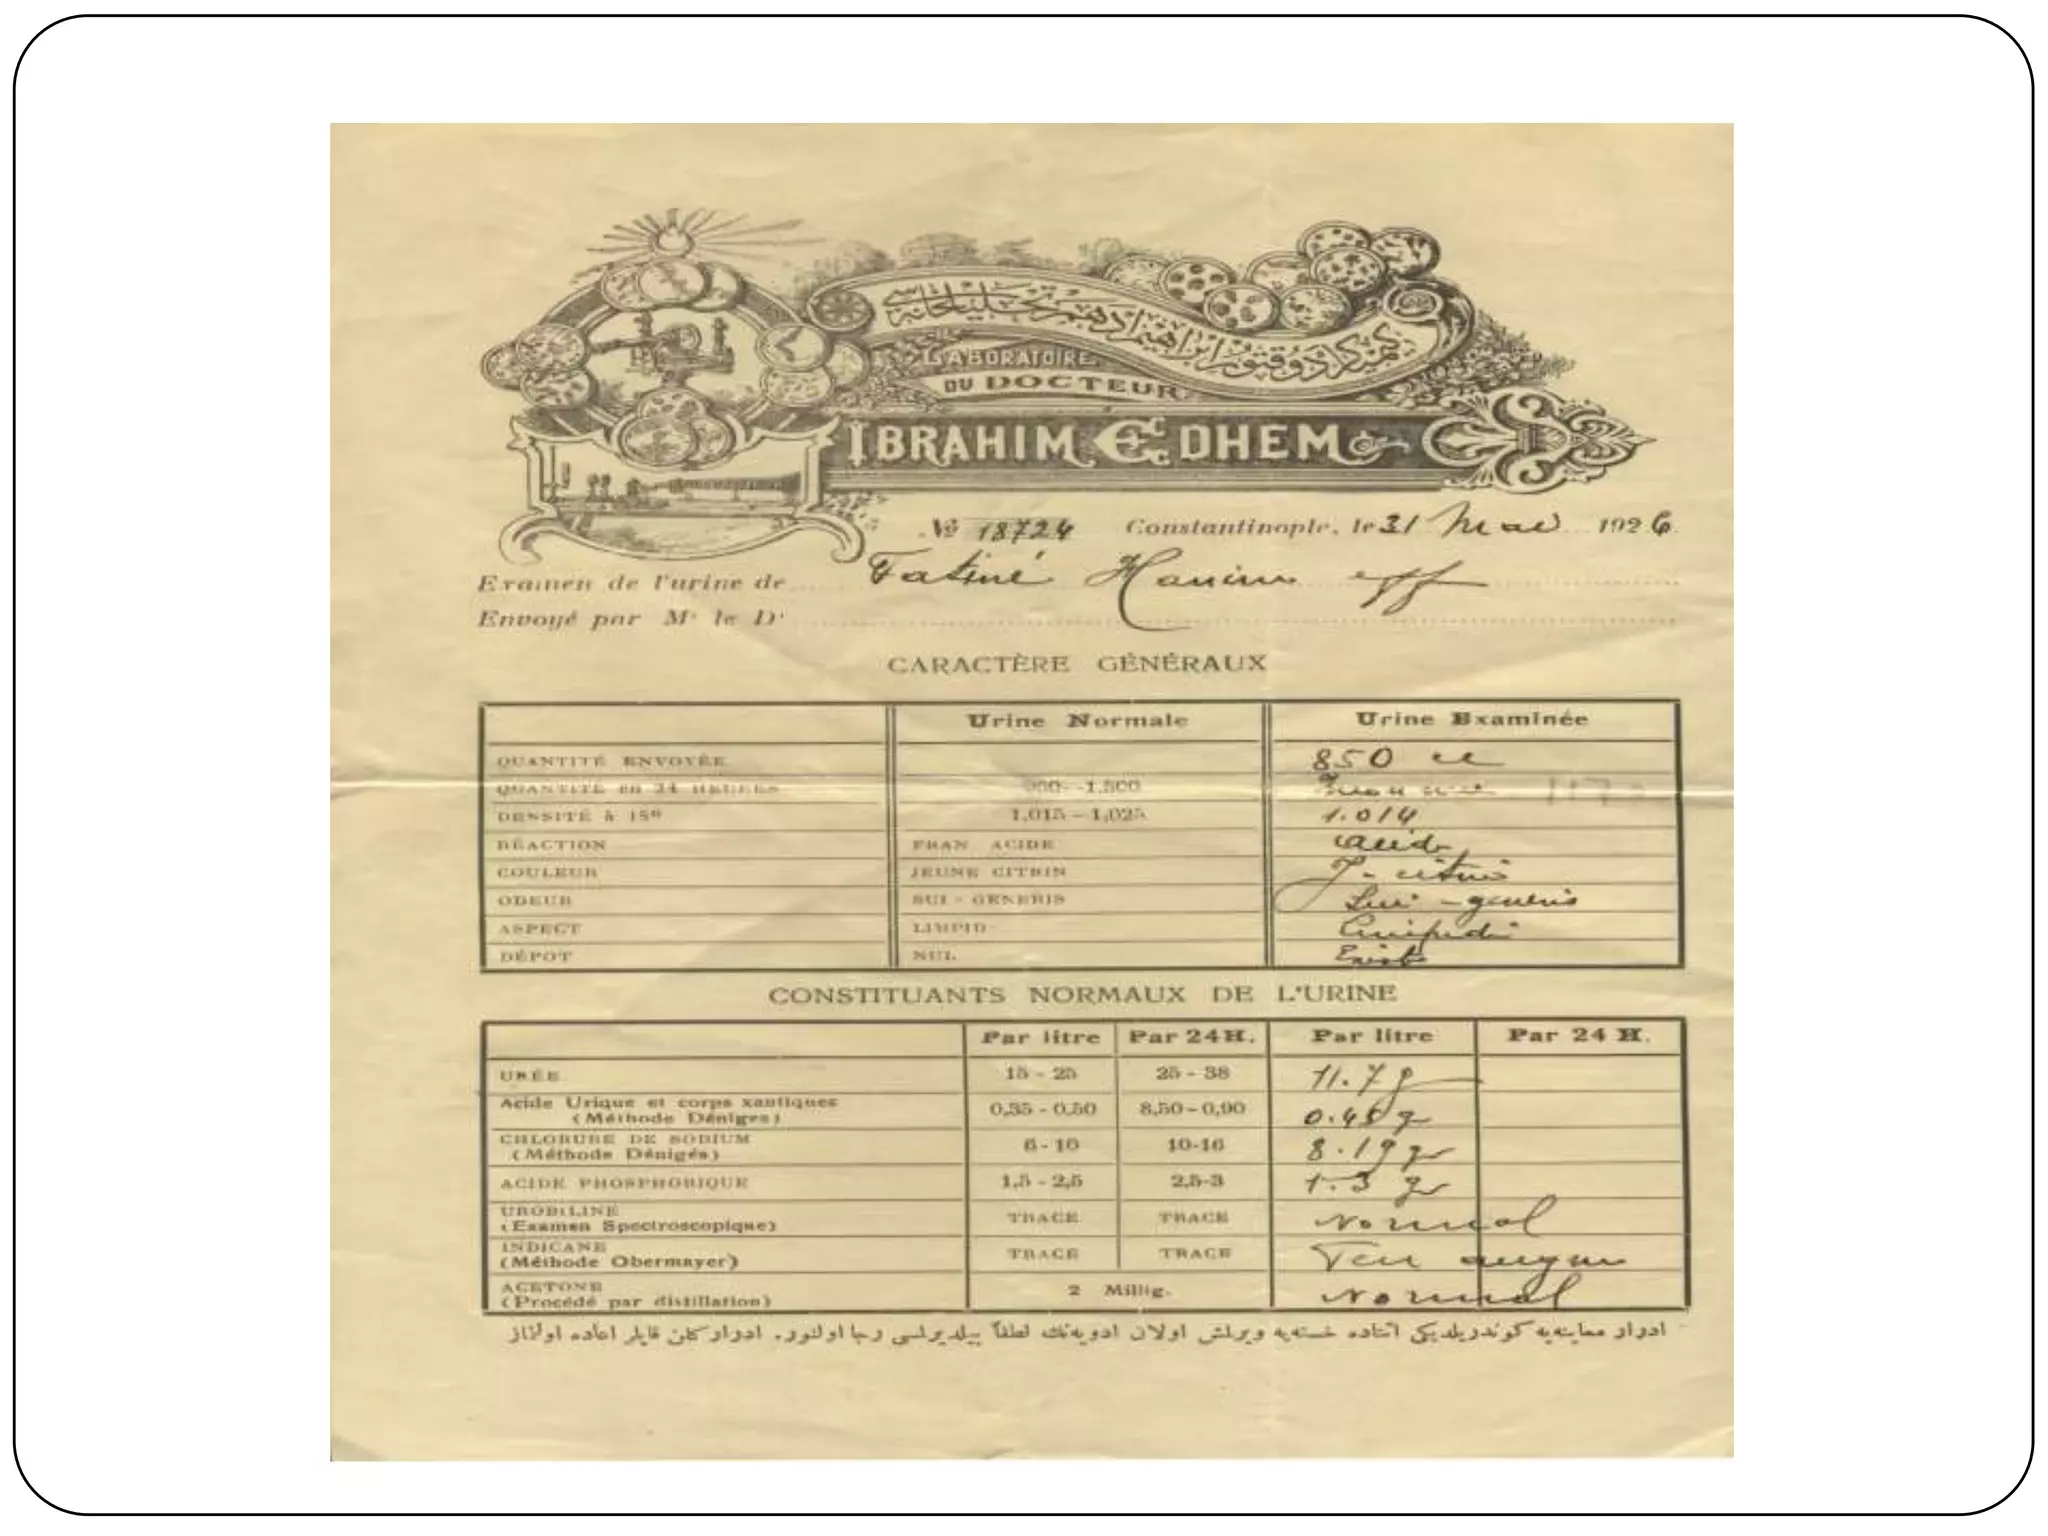 كيمياكر دوقتور ابراهيم ادهم تحليلخانه سى
LABORATOIRE
DU DOCTEUR
IBRAHIM EDHEM
No 18724 Constantinople, le 31 Mai 1926
Examen de l'urine de Fatiné Hanim eff
Envoyé par Mr le Dr
CARACTÈRE GÉNÉRAUX
Urine Normale Urine Examinée
QUANTITÉ ENVOYÉE 850 cc
QUANTITÉ en 24 HEURES -1.500
DENSITÉ à 15° 1,015 – 1,025 1.014
RÉACTION FRAN ACIDE acide
COULEUR JEUNE CITRIN J. citrin
ODEUR SUI - GENERIS Sui - generis
ASPECT LIMPID Limpide
DÉPOT NUL Existe
CONSTITUANTS NORMAUX DE L'URINE
Par litre Par 24H. Par litre Par 24 H.
URÉE 15 - 25 25 - 38 11.7 g
Acide Urique et corps xantiques
(Méthode Déniges) 0,35 - 0,50 8,50 – 0,90 0.45 gr
CHLORURE DE SODIUM
(Méthode Dénigés) 6 - 10 10-16 8.19 gr
ACIDE PHOSPHORIQUE 1,5 - 2,5 2,5-3 1.3 gr
UROBILINE
(Examen Spectroscopique) TRACE TRACE Normal
INDICANE
(Méthode Obermayer) TRACE TRACE
ACETONE
(Procédé par distillation) 2 Millig. Normal
ادرار معاينه‌يه كوندريلديكى اثناده خسته‌يه ويرلمش اولان ادويه‌نك لطفاً بيلديرلمسى رجا اولنور. ادرار كلن قابلر اعاده اولنماز